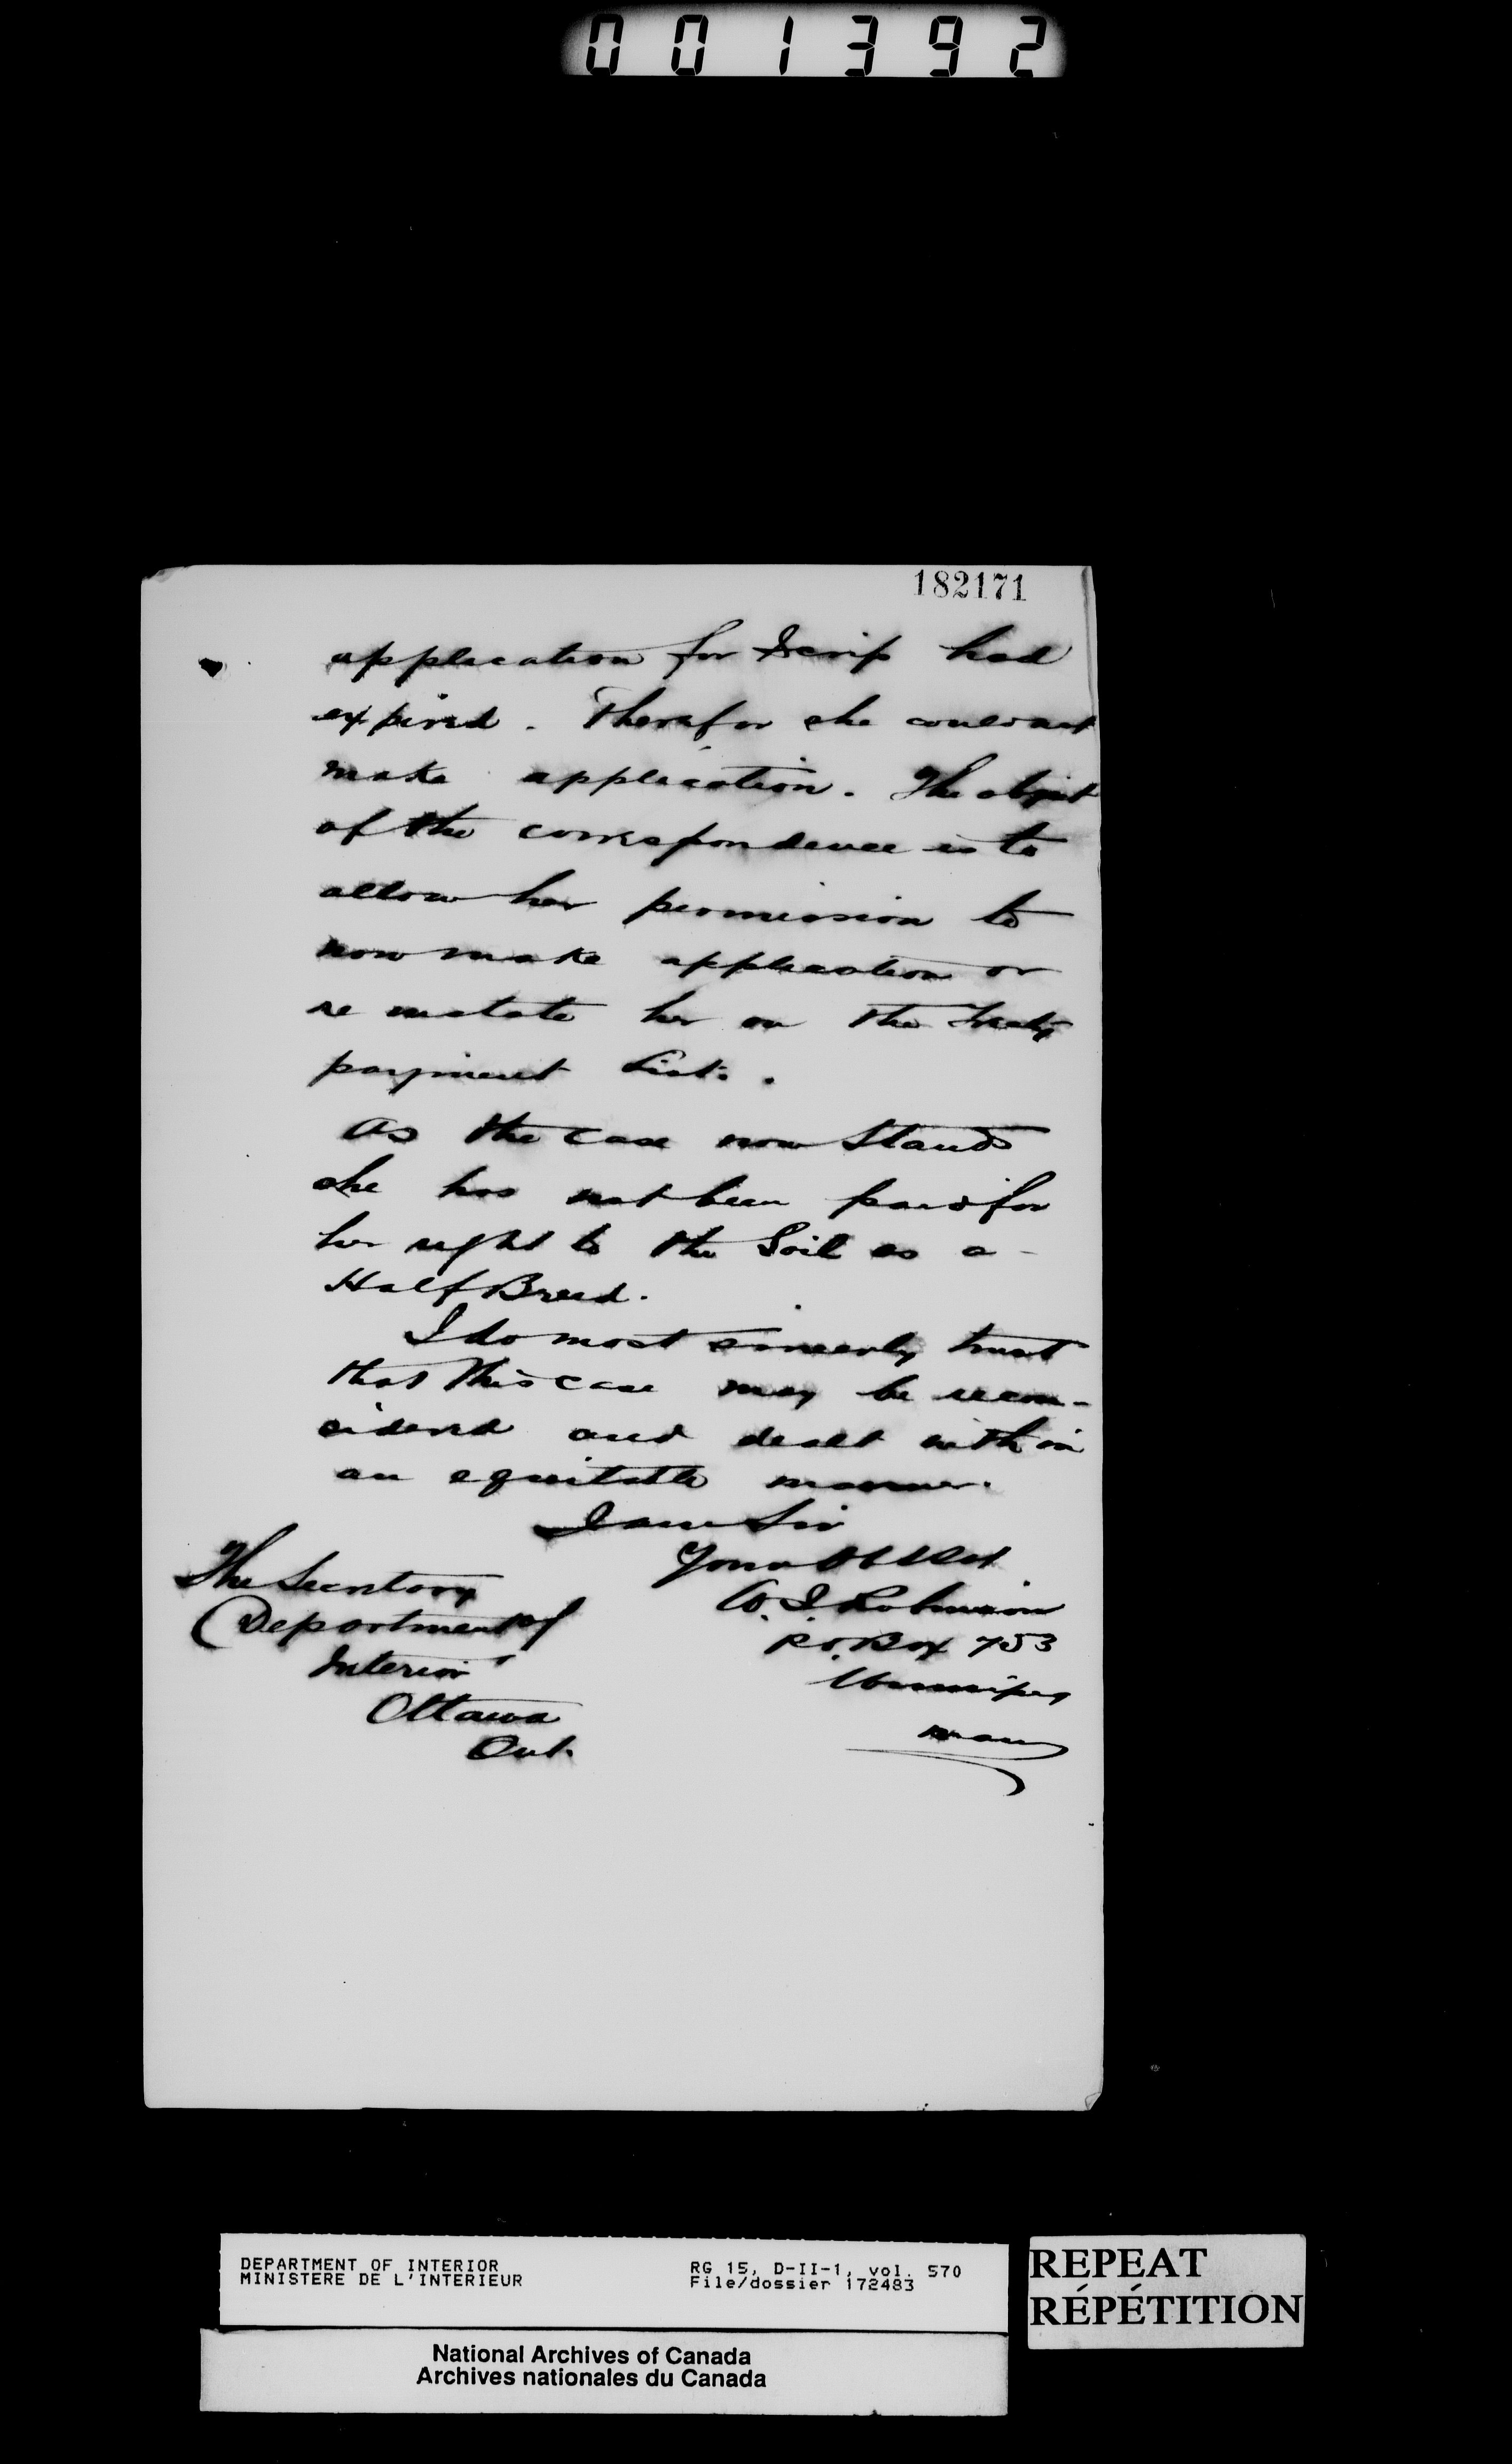 001392
182171
application for Scrip had
expired. Therefor she could not
make application. The object
of the correspondence is to
allow her permission to
now make application or
re instate her on the Treaty
payment List.
As the case now Stands
she has not been paid for
her right to the Soil as a
Half Breed.
I do most sincerely trust
that this case may be recon-
sidered and dealt with in
an equitable manner.
I am Sir
Your Obt Svt
The Secretary
W. J. Robinson
Department of
P.O. Box 753
Interior
Winnipeg
Ottawa
Man
Ont.
DEPARTMENT OF INTERIOR
MINISTERE DE L'INTERIEUR
RG 15, D-II-1, vol. 570
File/dossier 172483
REPEAT
RÉPÉTITION
National Archives of Canada
Archives nationales du Canada